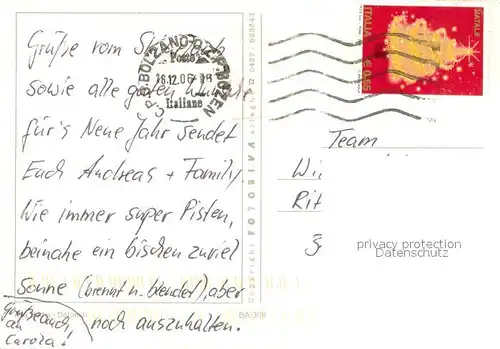 Grüße vom
sowie alle guten Wünsche
für's Neue Jahr sendet
Euch Andreas + Family.
Wie immer super Pisten,
beinahe ein bischen zuviel
Sonne (brennt u. blendet), aber
noch auszuhalten.
Grüße auch
an
Carola!
BOLZANO
BOZEN
Poste
18.12.06
Italiane
NATALE
ITALIA
Team
privacy protection
Datenschutz
FOTORIVA